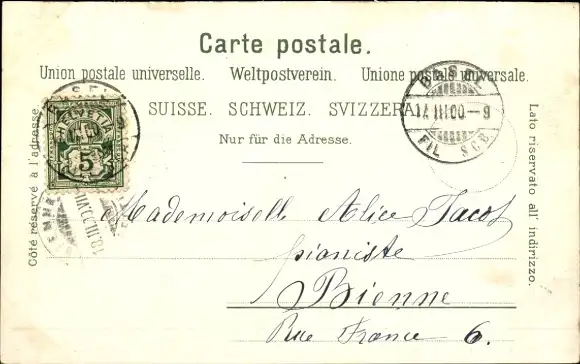 Carte postale.
Union postale universelle. Weltpostverein. Unione postale universale.
SUISSE. SCHWEIZ. SVIZZERA.
Nur für die Adresse.
Côté réservé à l'adresse.
Lato riservato all' indirizzo.
HELVETIA
5
BASEL
17 III 00 - 9
FIL SCB
18.III.00.VII
Mademoiselle Alice Jacot
pianiste
Bienne
Rue France 6.